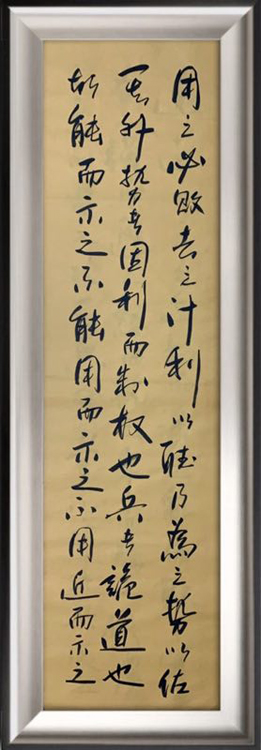 用之必败去之计利以听乃为之势以佐
其外势者因利而制权也兵者诡道也
故能而示之不能用而示之不用近而示之